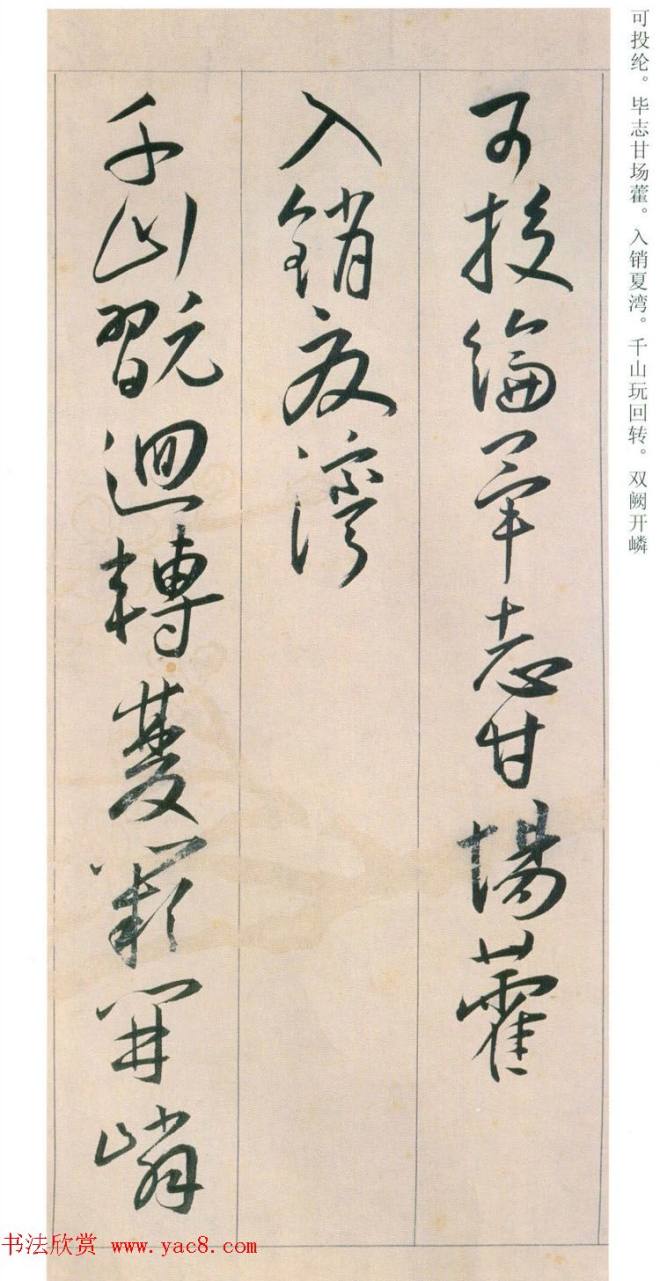 可投綸畢志甘場藿
入銷夏灣
千山翫迴轉雙闕開嶙
可投纶。毕志甘场藿。入销夏湾。千山玩回转。双阙开嶙
书法欣赏 www.yac8.com